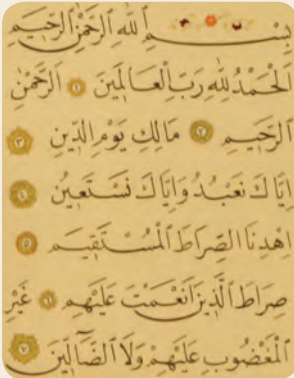 بِسْمِ اللَّهِ الرَّحْمَٰنِ الرَّحِيمِ
الْحَمْدُ لِلَّهِ رَبِّ الْعَالَمِينَ ١ الرَّحْمَٰنِ
الرَّحِيمِ ٢ مَالِكِ يَوْمِ الدِّينِ ٣
اِيَّاكَ نَعْبُدُ وَاِيَّاكَ نَسْتَعِينُ ٤
اِهْدِنَا الصِّرَاطَ الْمُسْتَقِيمَ ٥
صِرَاطَ الَّذِينَ اَنْعَمْتَ عَلَيْهِمْ ٦ غَيْرِ
الْمَغْضُوبِ عَلَيْهِمْ وَلَا الضَّالِّينَ ٧